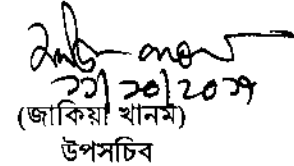 ২২/১০/২০১৭
(জাকিয়া খানম)
উপসচিব